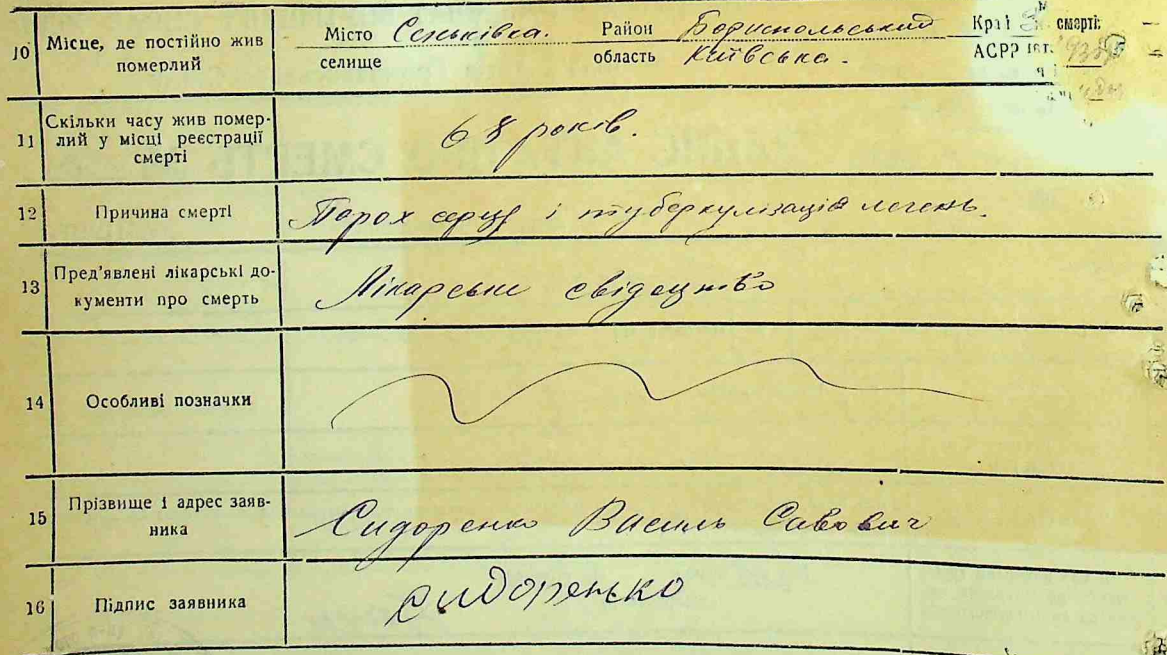 10 Місце, де постійно жив померлий Місто Сеньківка. Район Бориспольський Краї смерті:
селище область Київська. АСРР
11 Скільки часу жив помер-
лий у місці реєстрації
смерті 68 років.
12 Причина смерті Порох серця і туберкулізація легень.
13 Пред'явлені лікарські до-
кументи про смерть Лікарське свідоцтво
14 Особливі позначки
15 Прізвище і адрес заяв-
ника Сидоренко Василь Савович
16 Підпис заявника Сидоренько